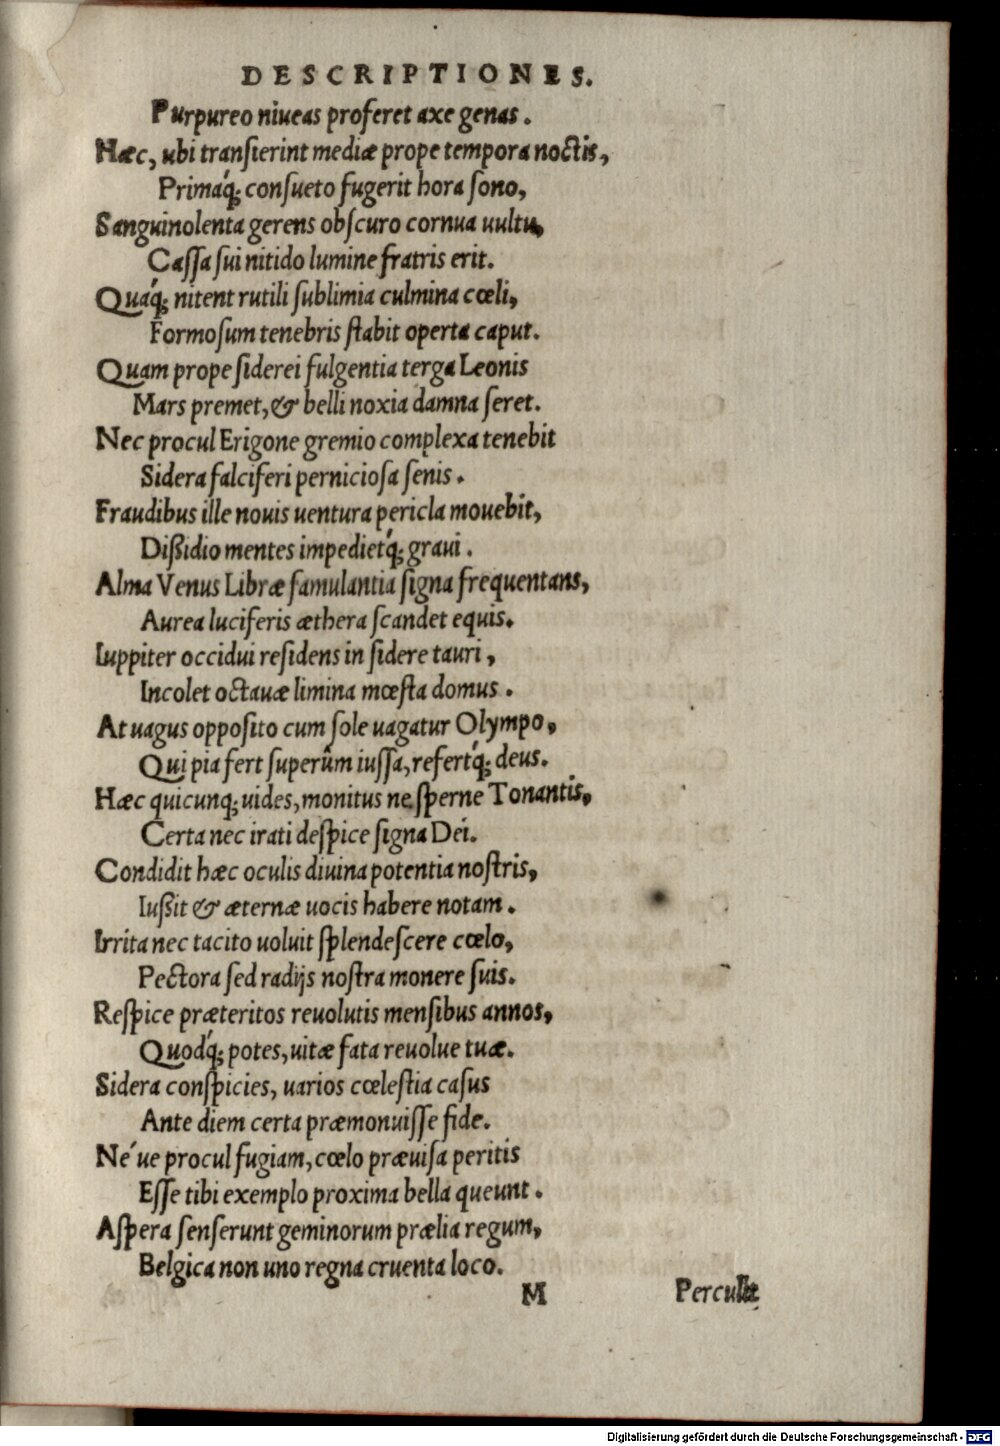 DESCRIPTIONES.
Purpureo niueas proferet axe genas.
Hæc, ubi transierint mediæ prope tempora noctis,
Primaq́; consueto fugerit hora sono,
Sanguinolenta gerens obscuro cornua uultu,
Cassa sui nitido lumine fratris erit.
Quáq; nitent rutili sublimia culmina cœli,
Formosum tenebris stabit operta caput.
Quam prope siderei fulgentia terga Leonis
Mars premet, & belli noxia damna seret.
Nec procul Erigone gremio complexa tenebit
Sidera falciferi perniciosa senis.
Fraudibus ille nouis uentura pericla mouebit,
Dißidio mentes impedietq́; graui.
Alma Venus Libræ famulantia signa frequentans,
Aurea luciferis æthera scandet equis.
Iuppiter occidui residens in sidere tauri,
Incolet octauæ limina mœsta domus.
At uagus opposito cum sole uagatur Olympo,
Qui pia fert superûm iussa, refertq́; deus.
Hæc quicunq; uides, monitus ne sperne Tonantis,
Certa nec irati despice signa Dei.
Condidit hæc oculis diuina potentia nostris,
Iußit & æternæ uocis habere notam.
Irrita nec tacito uoluit splendescere cœlo,
Pectora sed radijs nostra monere suis.
Respice præteritos reuolutis mensibus annos,
Quodq́; potes, uitæ fata reuolue tuæ.
Sidera conspicies, uarios cœlestia casus
Ante diem certa præmonuisse fide.
Né ue procul fugiam, cœlo præuisa peritis
Esse tibi exemplo proxima bella queunt.
Aspera senserunt geminorum prælia regum,
Belgica non uno regna cruenta loco.
M Perculit
Digitalisierung gefördert durch die Deutsche Forschungsgemeinschaft - DFG